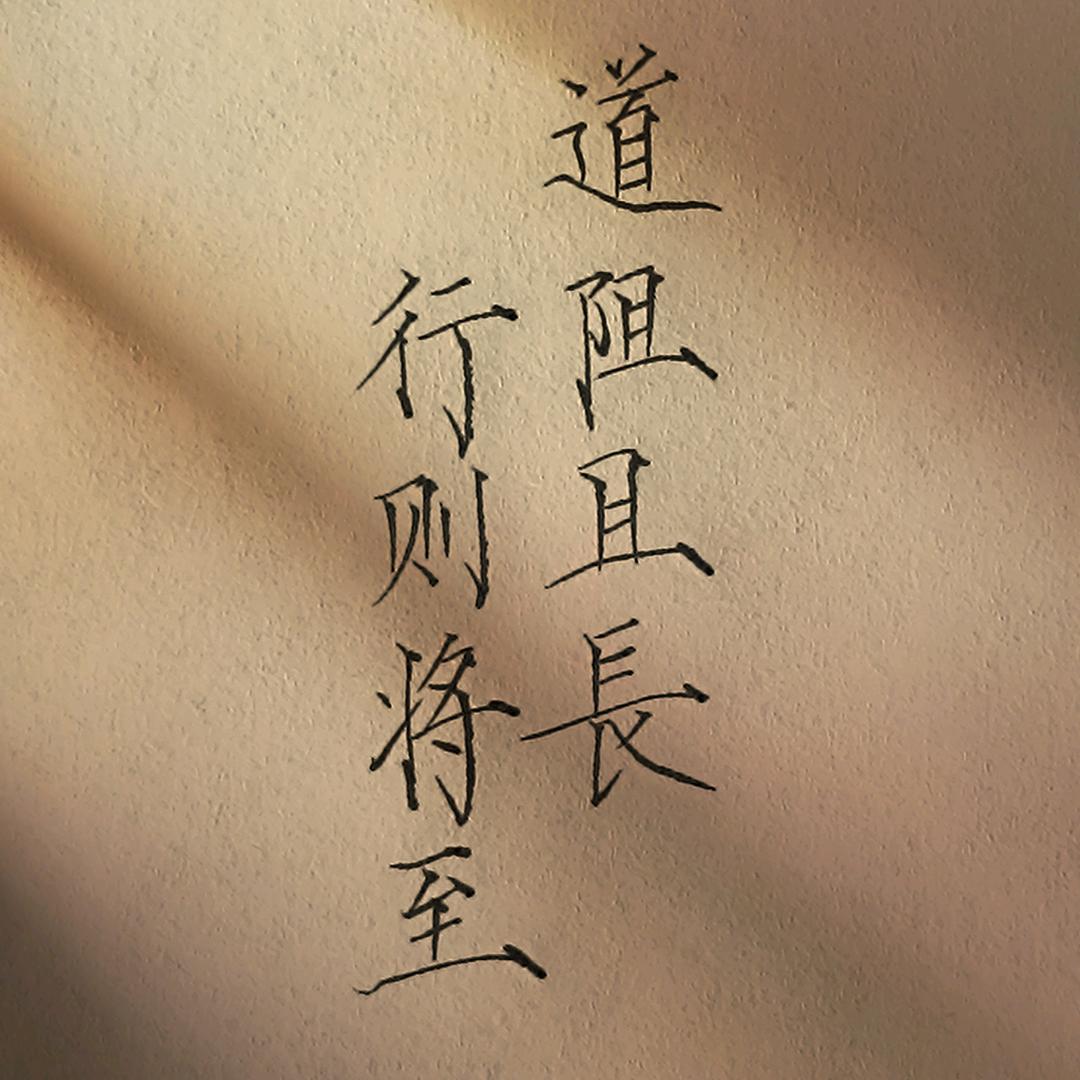 道阻且長
行则将至